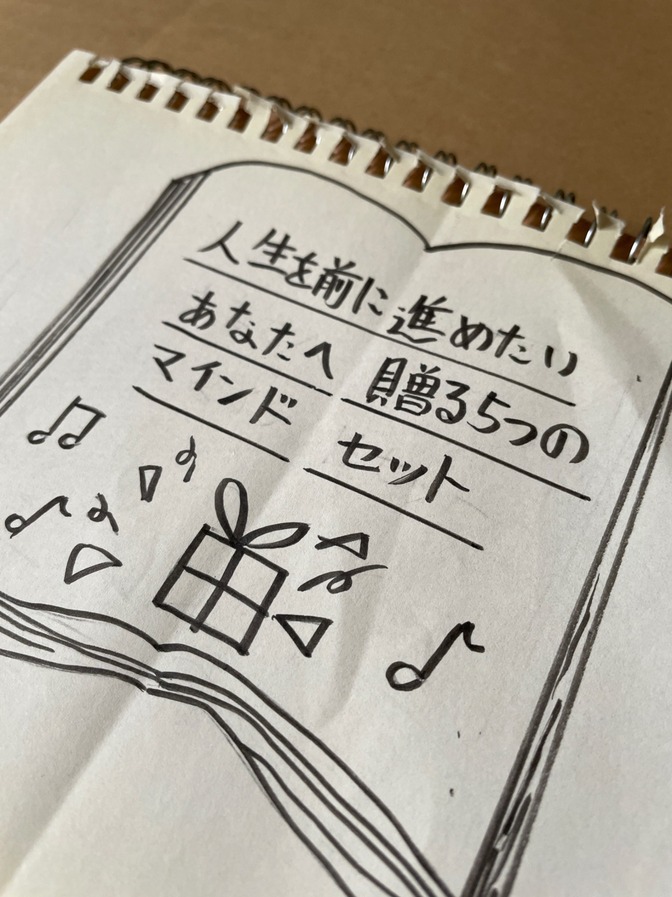 人生を前に進めたい
あなたへ 贈る5つの
マインド セット